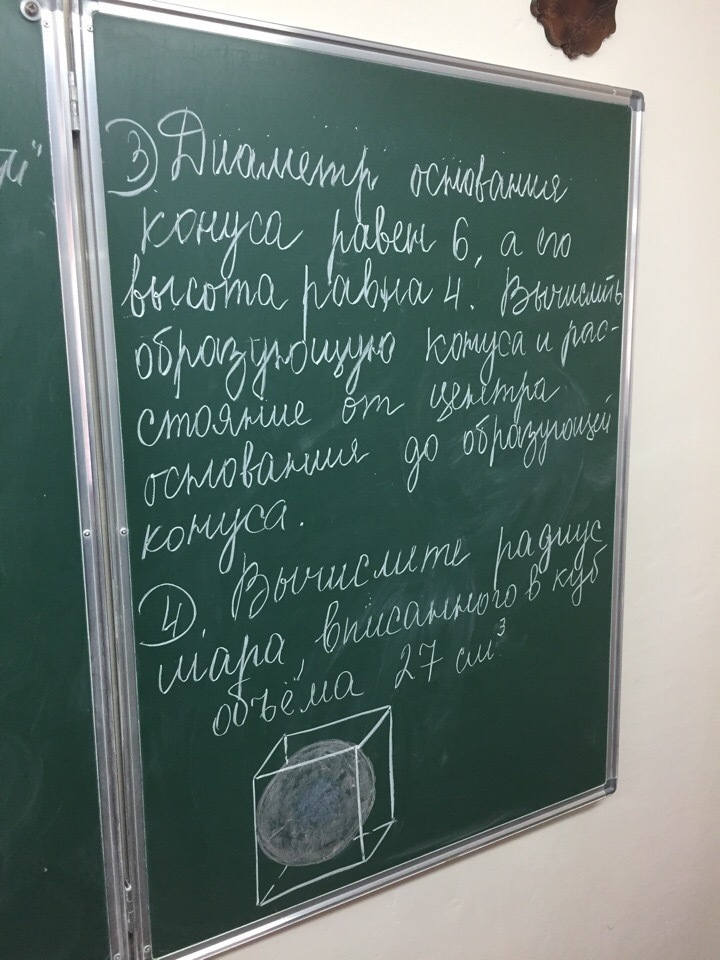 ③ Диаметр основания
конуса равен 6, а его
высота равна 4. Вычислить
образующую конуса и рас-
стояние от центра
основания до образующей
конуса.
④ Вычислите радиус
шара, вписанного в куб
объёма 27 см³